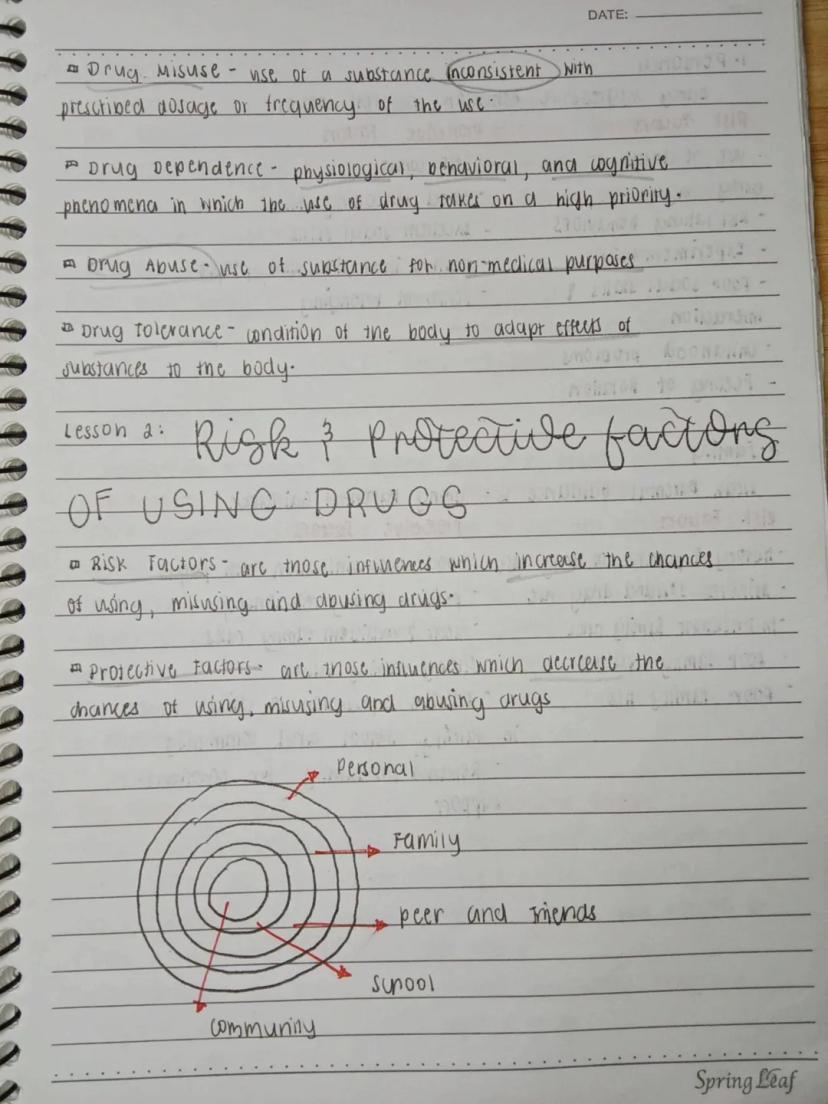 DATE:
Drug Misuse - use of a substance inconsistent with
prescribed dosage or frequency of the use.
Drug Dependence - physiological, behavioral, and cognitive
phenomena in which the use of drug takes on a high priority.
Drug Abuse - use of substance for non-medical purposes
Drug Tolerance - condition of the body to adapt effects of
substances to the body.
Lesson 2: Risk & Protective factors
OF USING DRUGS
Risk Factors - are those influences which increase the chances
of using, misusing and abusing drugs.
Protective Factors - are those influences which decrease the
chances of using, misusing and abusing drugs
Personal
Family
peer and friends
school
community
Spring Leaf